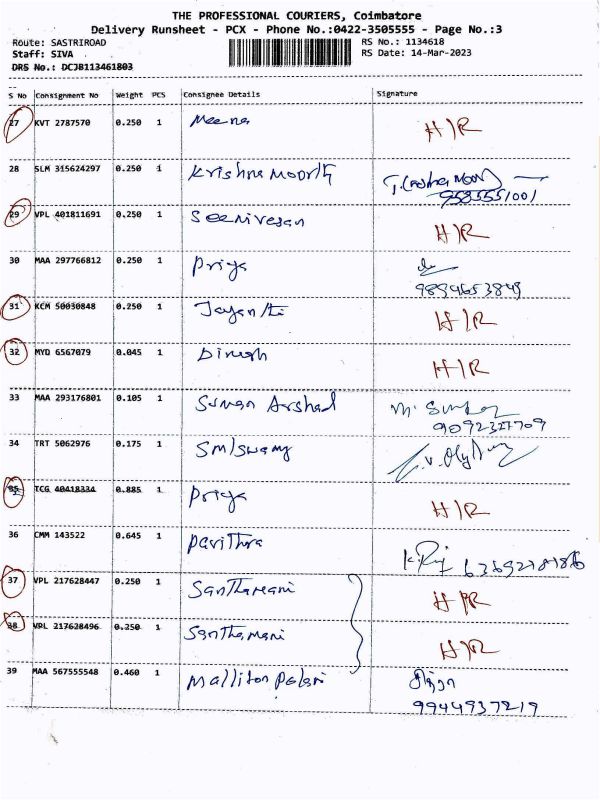 THE PROFESSIONAL COURIERS, Coimbatore
Delivery Runsheet - PCX - Phone No.:0422-3505555 - Page No.:3
Route: SASTRIROAD RS No.: 1134618
Staff: SIVA RS Date: 14-Mar-2023
DRS No.: DCJB113461803
S No Consignment No Weight PCS Consignee Details Signature
27 KVT 2787570 0.250 1 Meena H/R
28 SLM 315624297 0.250 1 Krishna Moorth
9585551001
29 VPL 401811691 0.250 1 Seenivesan H/R
30 MAA 297766812 0.250 1 Priya
9894653849
31 KCM 50030848 0.250 1 Jayanthi H/R
32 MYD 6567079 0.045 1 Dinesh H/R
33 MAA 293176801 0.105 1 Suman Arshad
34 TRT 5062976 0.175 1
35 TCG 40418334 0.885 1 Priya H/R
36 CMM 143522 0.645 1 Pavithra
37 VPL 217628447 0.250 1 Santhamani H/R
38 VPL 217628496 0.250 1 Santhamani H/R
39 MAA 567555548 0.460 1
9944937219